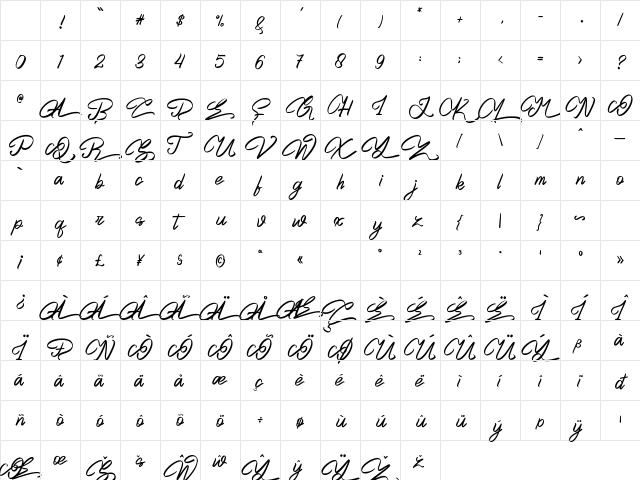 ! " # $ % & ' ( ) * + , - . /
0 1 2 3 4 5 6 7 8 9 : ; < = > ?
@ A B C D E F G H I J K L M N O
P Q R S T U V W X Y Z [ \ ] ^ _
` a b c d e f g h i j k l m n o
p q r s t u v w x y z { | } ~
¡ ¢ £ ¥ § © ª « ° ² ³ · ¹ º »
¿ À Á Â Ã Ä Å Æ Ç È É Ê Ë Ì Í Î
Ï Ð Ñ Ò Ó Ô Õ Ö Ø Ù Ú Û Ü Ý ß à
á â ã ä å æ ç è é ê ë ì í î ï đ
ñ ò ó ô õ ö ÷ ø ù ú û ü ý þ ÿ ı
Œ œ Š š Ŵ ŵ Ŷ ŷ Ÿ Ž ž